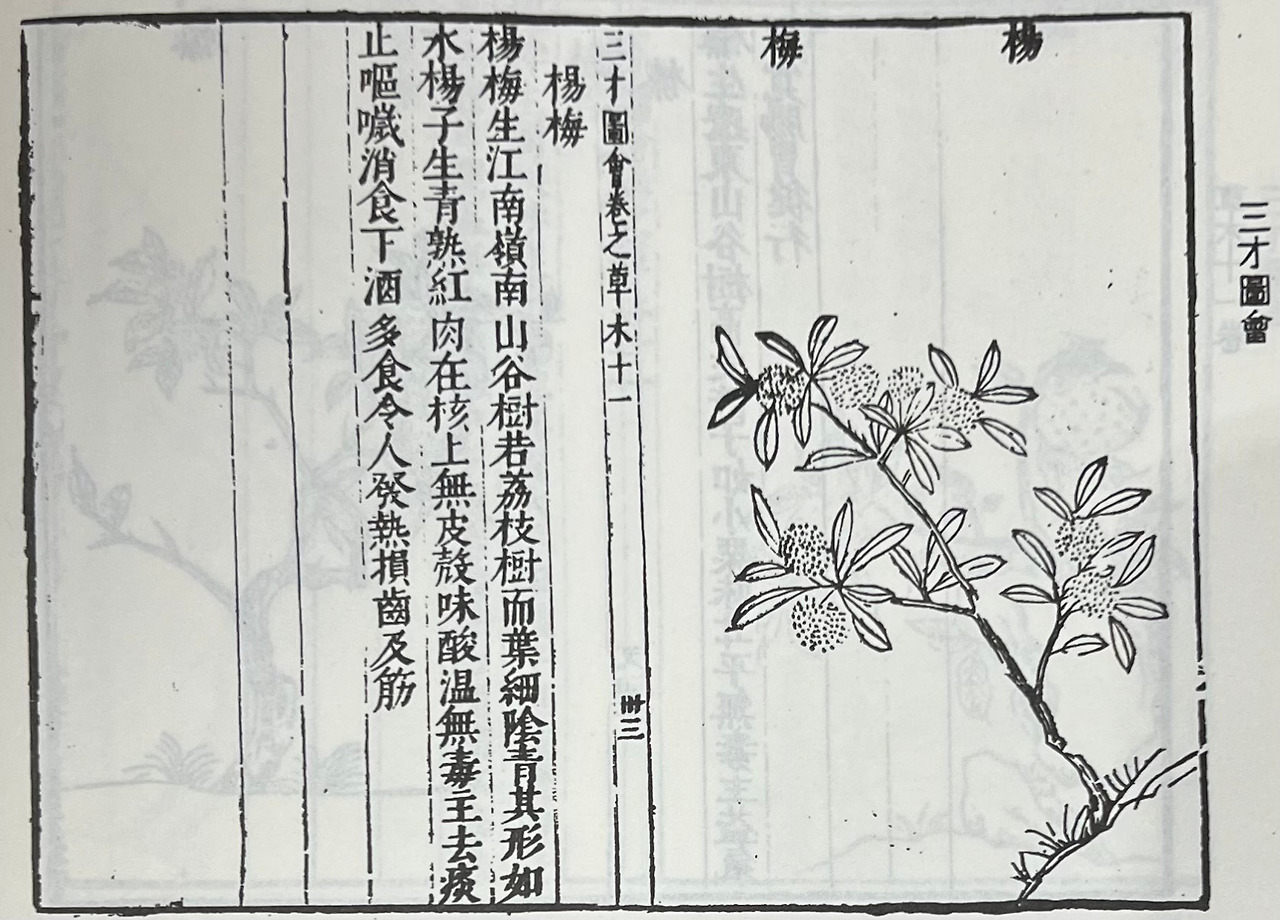 三才圖會
楊
梅
三才圖會卷之草木十一
楊梅
楊梅生江南嶺南山谷樹若荔枝樹而葉細陰青其形如
水楊子生青熟紅肉在核上無皮殼味酸温無毒主去痰
止嘔噦消食下酒多食令人發熱損齒及筋